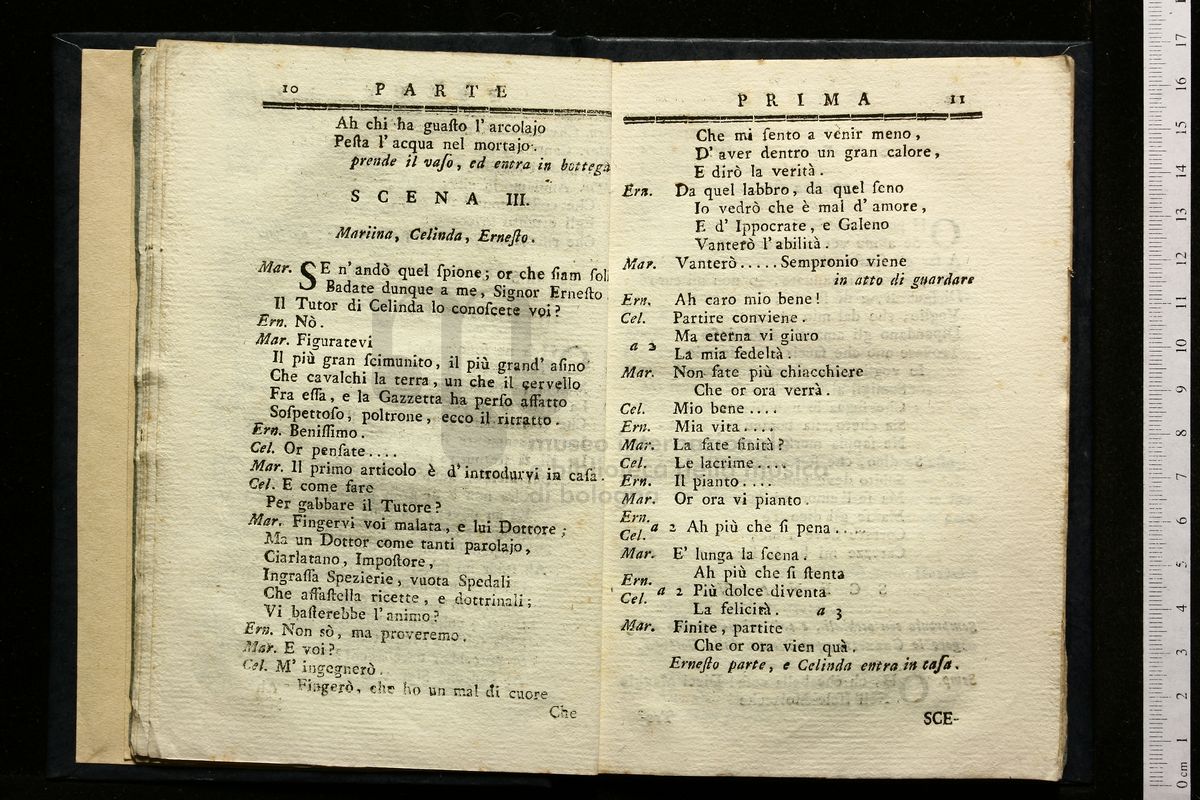 10 PARTE
Ah chi ha guaſto l' arcolajo
Peſta l' acqua nel mortajo.
prende il vaſo, ed entra in bottega
SCENA III.
Mariina, Celinda, Erneſto.
Mar. SE n' andò quel ſpione; or che ſiam ſoli
Badate dunque a me, Signor Erneſto
Il Tutor di Celinda lo conoſcete voi?
Ern. Nò.
Mar. Figuratevi
Il più gran ſcimunito, il più grand' aſino
Che cavalchi la terra, un che il çervello
Fra eſſa, e la Gazzetta ha perſo affatto
Soſpettoſo, poltrone, ecco il ritratto.
Ern. Beniſſimo.
Cel. Or penſate....
Mar. Il primo articolo è d' introdurvi in caſa.
Cel. E come fare
Per gabbare il Tutore?
Mar. Fingervi voi malata, e lui Dottore;
Ma un Dottor come tanti parolajo,
Ciarlatano, Impoſtore,
Ingraſſa Spezierie, vuota Spedali
Che affaſtella ricette, e dottrinali;
Vi baſterebbe l' animo?
Ern. Non sò, ma proveremo.
Mar. E voi?
Cel. M' ingegnerò.
Fingerò, che ho un mal di cuore
Che
PRIMA 11
Che mi ſento a venir meno,
D' aver dentro un gran calore,
E dirò la verità.
Ern. Da quel labbro, da quel ſeno
Io vedrò che è mal d' amore,
E d' Ippocrate, e Galeno
Vanterò l' abilità.
Mar. Vanterò..... Sempronio viene
in atto di guardare
Ern. Ah caro mio bene!
Cel. Partire conviene.
a 2 Ma eterna vi giuro
La mia fedeltà.
Mar. Non fate più chiacchiere
Che or ora verrà.
Cel. Mio bene....
Ern. Mia vita....
Mar. La fate finità?
Cel. Le lacrime....
Ern. Il pianto....
Mar. Or ora vi pianto.
Ern.
Cel. a 2 Ah più che ſi pena....
Mar. E' lunga la ſcena.
Ah più che ſi ſtenta
Ern.
Cel. a 2 Più dolce diventa
La felicità. a 3
Mar. Finite, partite
Che or ora vien quà.
Erneſto parte, e Celinda entra in caſa.
SCE-